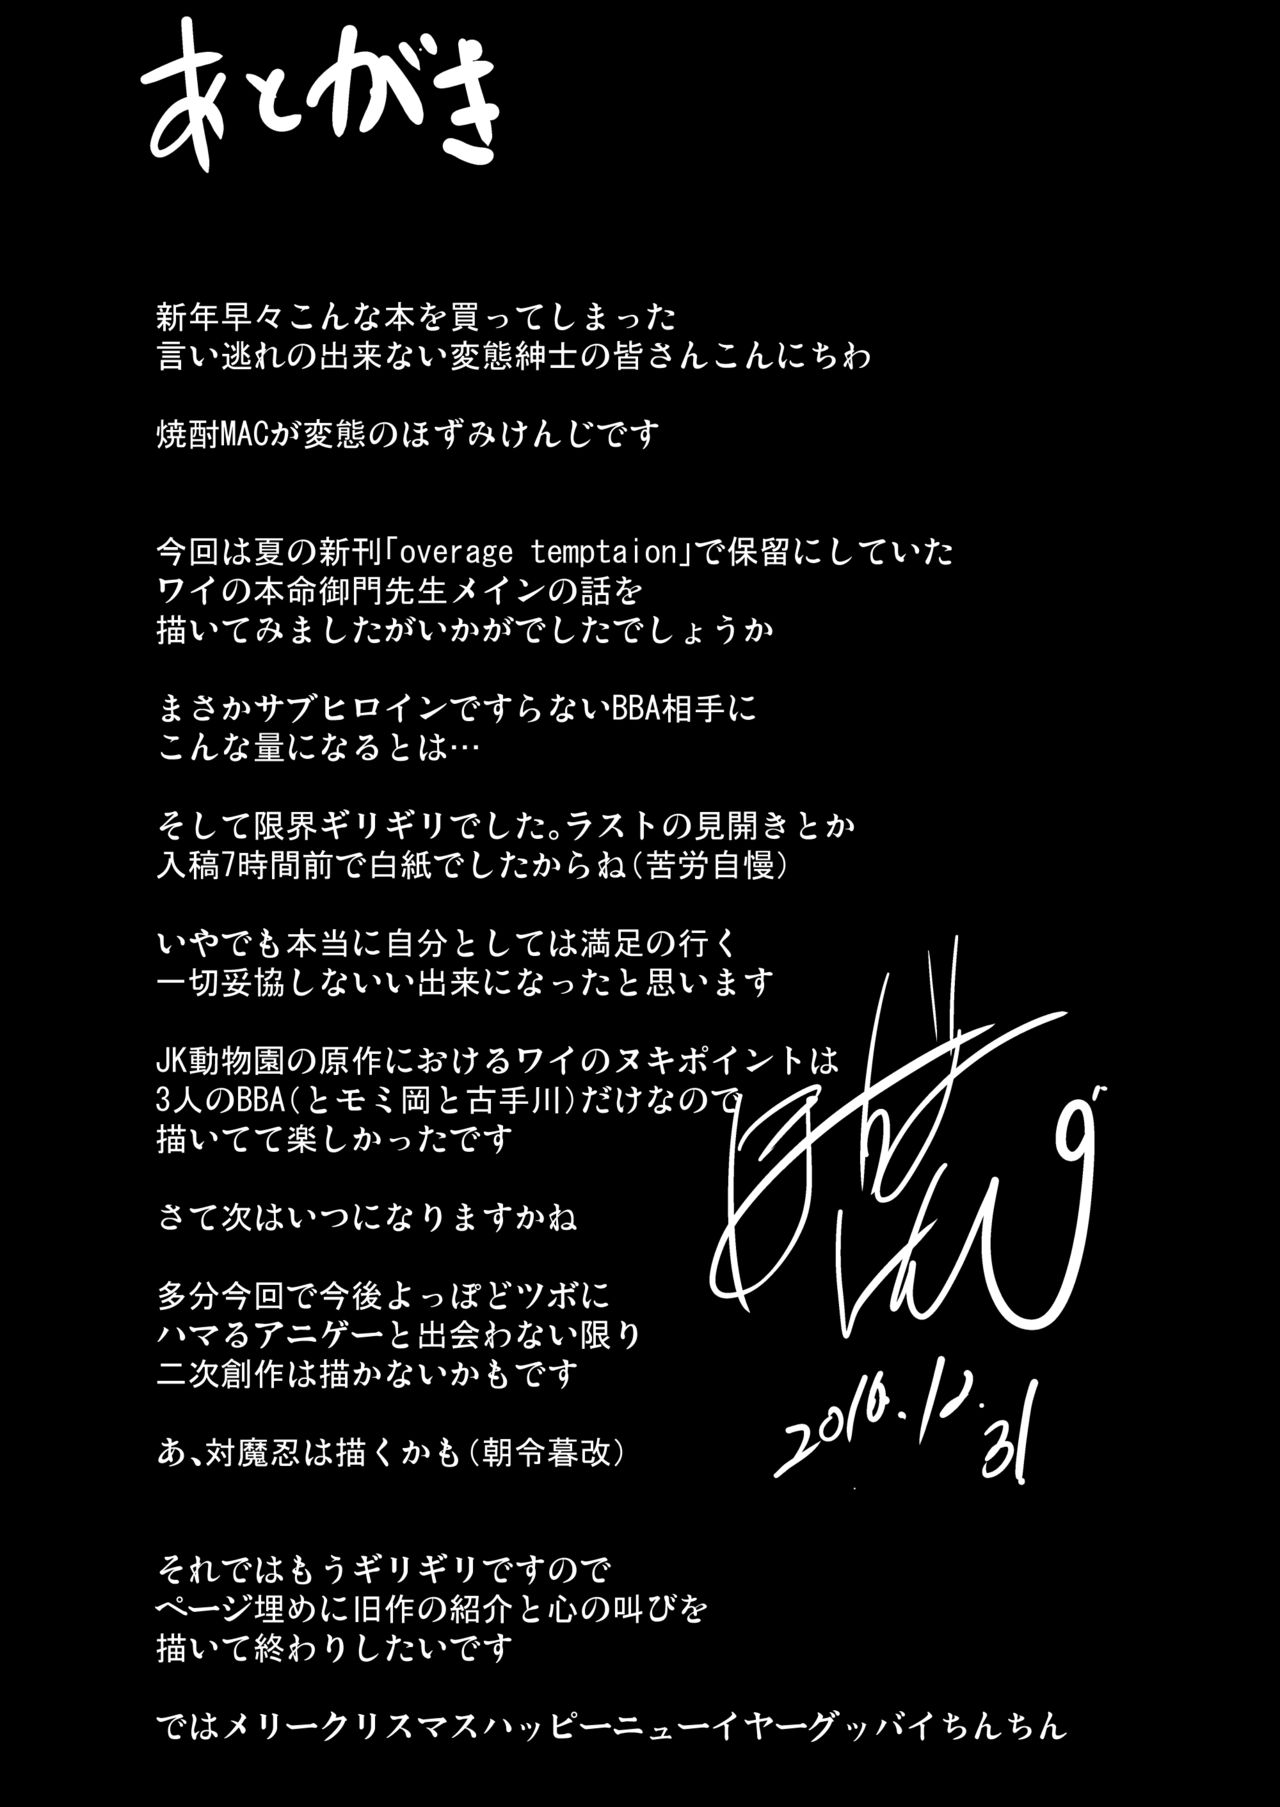 あとがき
新年早々こんな本を買ってしまった
言い逃れの出来ない変態紳士の皆さんこんにちわ
焼酎MACが変態のほずみけんじです
今回は夏の新刊｢overage temptaion｣で保留にしていた
ワイの本命御門先生メインの話を
描いてみましたがいかがでしたでしょうか
まさかサブヒロインですらないBBA相手に
こんな量になるとは…
そして限界ギリギリでした。ラストの見開きとか
入稿7時間前で白紙でしたからね(苦労自慢)
いやでも本当に自分としては満足の行く
一切妥協しないいい出来になったと思います
JK動物園の原作におけるワイのヌキポイントは
3人のBBA(とモミ岡と古手川)だけなので
描いてて楽しかったです
さて次はいつになりますかね
多分今回で今後よっぽどツボに
ハマるアニゲーと出会わない限り
二次創作は描かないかもです
あ､対魔忍は描くかも(朝令暮改)
それではもうギリギリですので
ページ埋めに旧作の紹介と心の叫びを
描いて終わりしたいです
ではメリークリスマスハッピーニューイヤーグッバイちんちん
2016.12.31